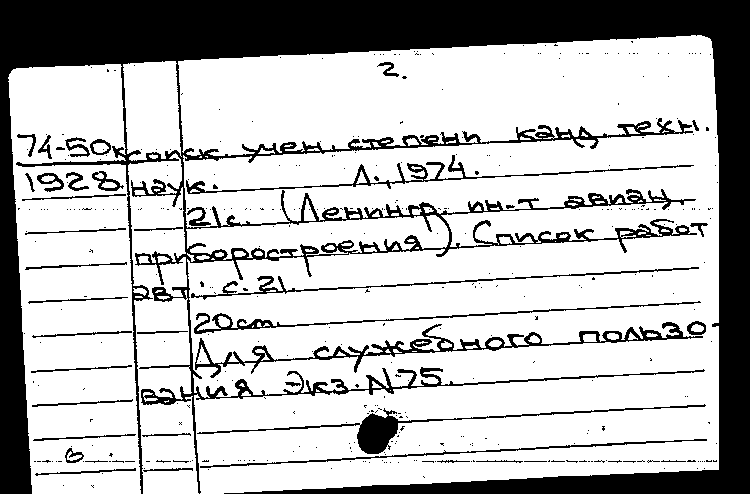 2.
74-50к соиск. учен. степени канд. техн.
1928 наук. Л., 1974.
21с. (Ленингр. ин-т авиац.
приборостроения). Список работ
авт.: с. 21.
20 cm.
Для служебного пользо-
вания. Экз. N 75.